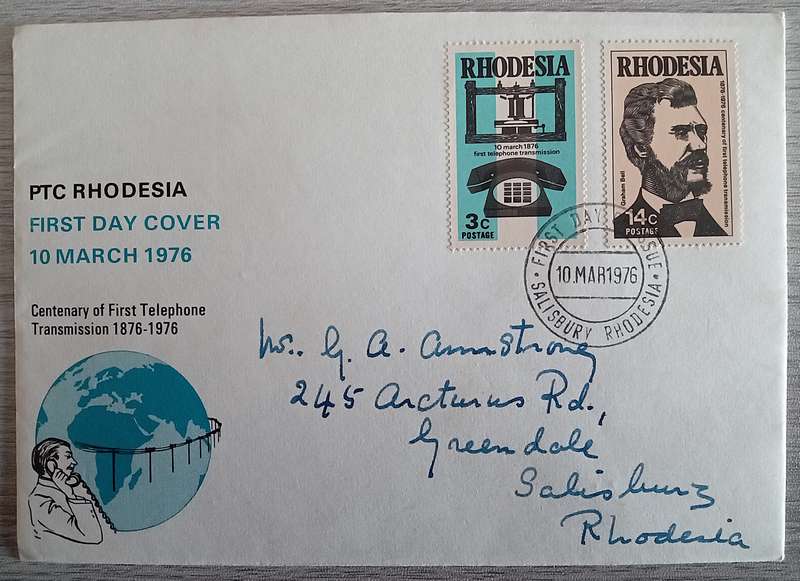 RHODESIA
10 march 1876
first telephone transmission
3c
POSTAGE
RHODESIA
1876-1976 centenary of first telephone transmission
Graham Bell
14c
POSTAGE
PTC RHODESIA
FIRST DAY COVER
10 MARCH 1976
Centenary of First Telephone
Transmission 1876-1976
FIRST DAY OF ISSUE
10.MAR1976
SALISBURY RHODESIA
Mr. G. A. Armstrong
245 Arcturus Rd.,
Greendale
Salisbury
Rhodesia